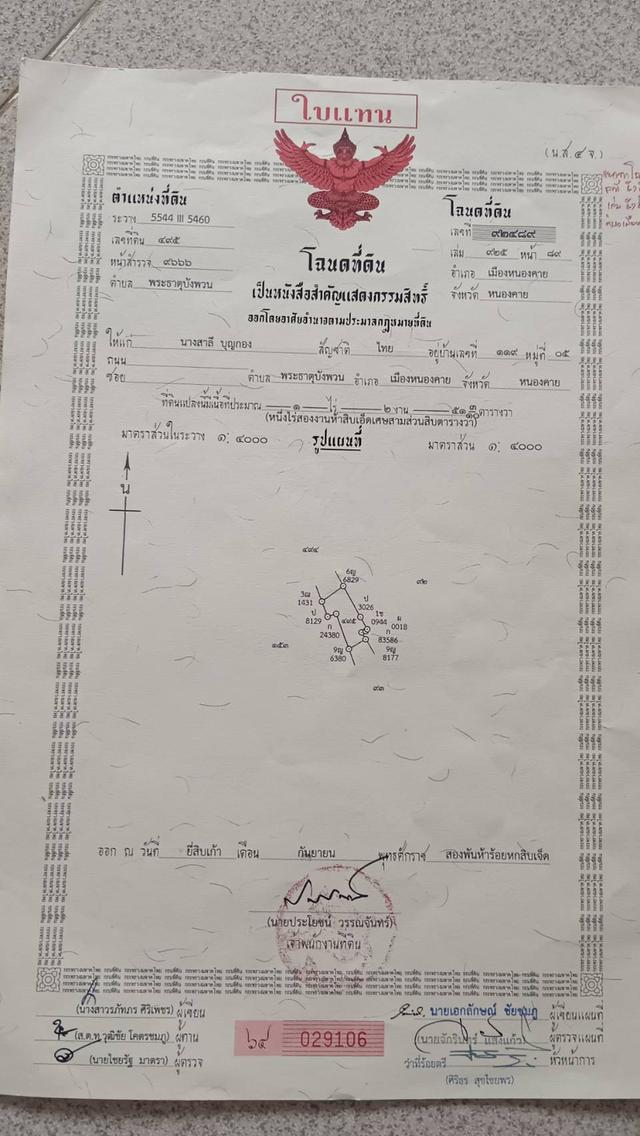 ใบแทน
(น.ส.๔ จ.)
ตำแหน่งที่ดิน
ระวาง 5544 III 5460
เลขที่ดิน ๔๙๕
หน้าสำรวจ ๙๖๖๖
ตำบล พระธาตุบังพวน
โฉนดที่ดิน
เลขที่ ๙๒๔๘๙
เล่ม ๙๒๕ หน้า ๘๙
อำเภอ เมืองหนองคาย
จังหวัด หนองคาย
โฉนดที่ดิน
เป็นหนังสือสำคัญแสดงกรรมสิทธิ์
ออกโดยอาศัยอำนาจตามประมวลกฎหมายที่ดิน
ให้แก่ นางสาลี บุญกอง สัญชาติ ไทย อยู่บ้านเลขที่ ๑๑๙ หมู่ที่ ๐๕
ถนน
ซอย ตำบล พระธาตุบังพวน อำเภอ เมืองหนองคาย จังหวัด หนองคาย
ที่ดินแปลงนี้มีเนื้อที่ประมาณ ๑ ไร่ ๒ งาน ๕๑ ๓/๑๐ ตารางวา
(หนึ่งไร่สองงานห้าสิบเอ็ดเศษสามส่วนสิบตารางวา)
มาตราส่วนในระวาง ๑: ๔๐๐๐ รูปแผนที่ มาตราส่วน ๑: ๔๐๐๐
น
๔๙๔
6ญ
6829
๙๒
3ฒ
1431
ป
3026
ป
8129
๔๙๕
1ช
0944
ผ
0018
ก
24380
ก
83586
๑๕๓
9ญ
6380
9ญ
8177
๙๓
ออก ณ วันที่ ยี่สิบเก้า เดือน กันยายน พุทธศักราช สองพันห้าร้อยหกสิบเจ็ด
(นายประโยชน์ วรรณจันทร์)
เจ้าพนักงานที่ดิน
(นางสาวรภัทภร ศิริเพชร) ผู้เขียน
(ส.ต.ท.วุฒิชัย โคตรชมภู) ผู้ทาน
(นายไชยรัฐ มาตรา) ผู้ตรวจ
๖๔ 029106
นายเอกลักษณ์ ชัยชมภู ผู้เขียนแผนที่
(นายจักรินทร์ แสงแก้ว) ผู้ตรวจแผนที่
ว่าที่ร้อยตรี หัวหน้าการ
(ศิริธร สุขไชยพร)